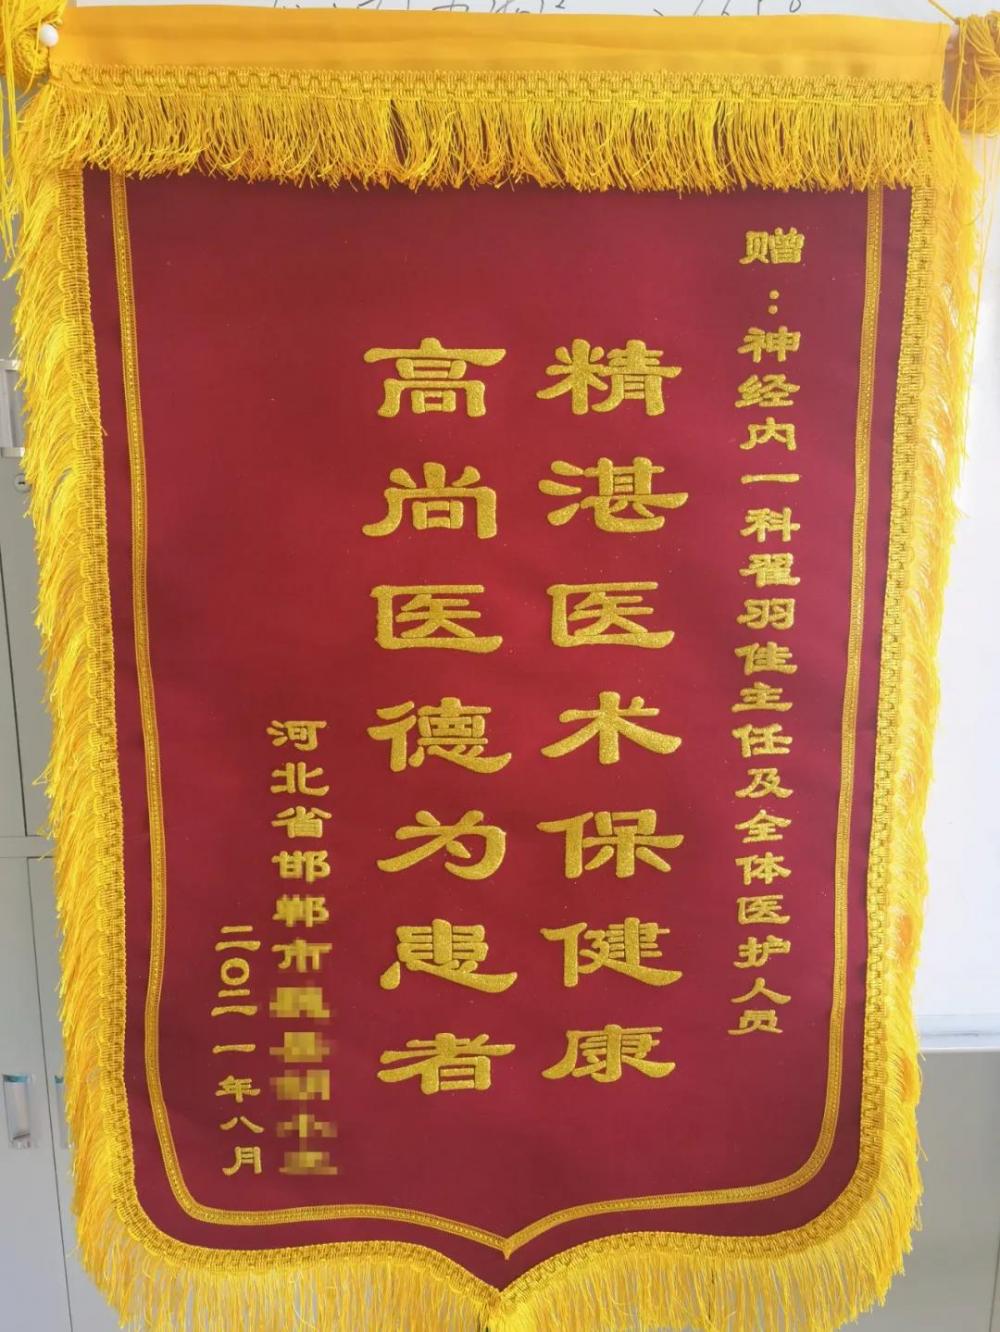 赠：神经内一科翟羽佳主任及全体医护人员
精湛医术保健康
高尚医德为患者
河北省邯郸市
二〇二一年八月